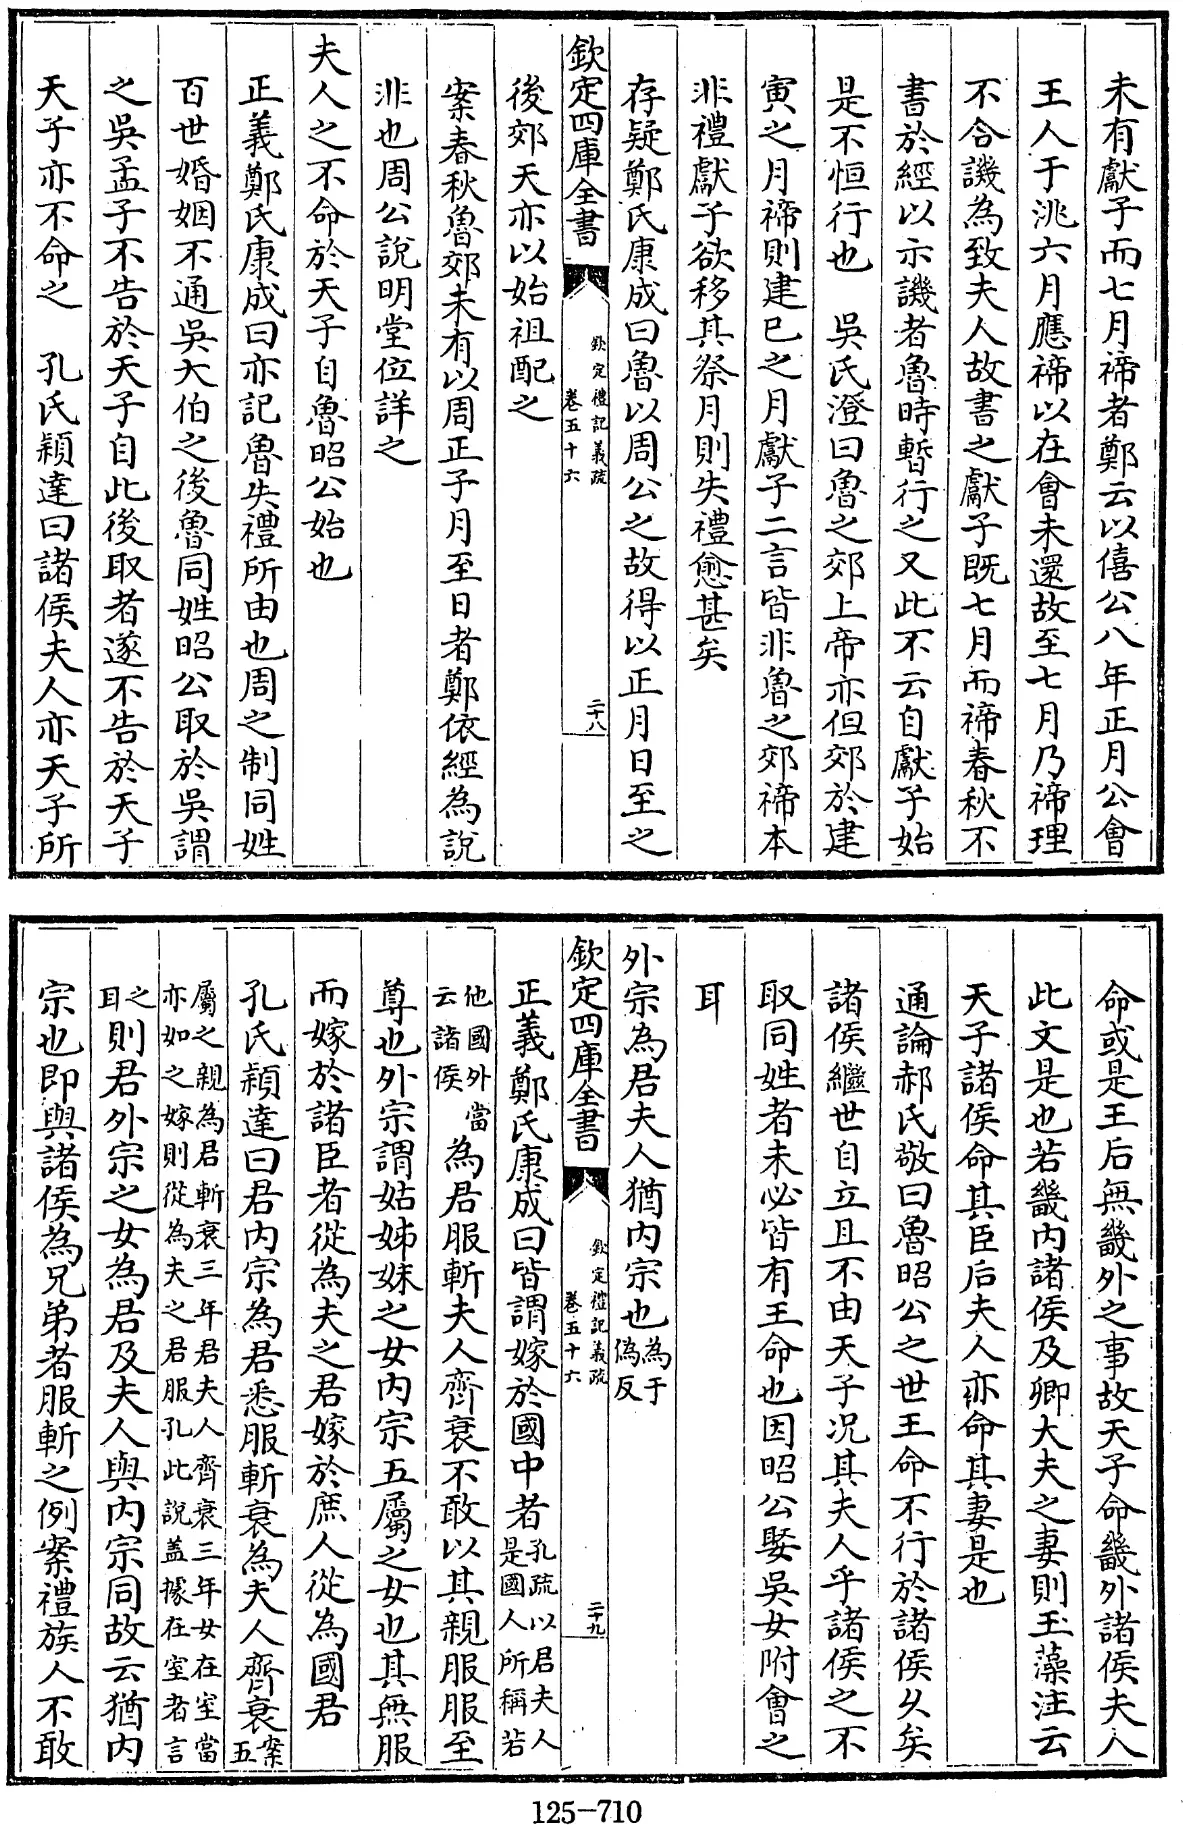 未有獻子而七月禘者鄭云以僖公八年正月公會
王人于洮六月應禘以在會未還故至七月乃禘理
不合譏為致夫人故書之獻子既七月而禘春秋不
書於經以示譏者魯時暫行之又此不云自獻子始
是不恒行也　吳氏澄曰魯之郊上帝亦但郊於建
寅之月禘則建巳之月獻子二言皆非魯之郊禘本
非禮獻子欲移其祭月則失禮愈甚矣
存疑鄭氏康成曰魯以周公之故得以正月日至之
欽定四庫全書
欽定禮記義疏
卷五十六
二十八
後郊天亦以始祖配之
案春秋魯郊未有以周正子月至日者鄭依經為說
非也周公說明堂位詳之
夫人之不命於天子自魯昭公始也
正義鄭氏康成曰亦記魯失禮所由也周之制同姓
百世婚姻不通吳大伯之後魯同姓昭公取於吳謂
之吳孟子不告於天子自此後取者遂不告於天子
天子亦不命之　孔氏穎達曰諸侯夫人亦天子所
命或是王后無畿外之事故天子命畿外諸侯夫人
此文是也若畿內諸侯及卿大夫之妻則玉藻注云
天子諸侯命其臣后夫人亦命其妻是也
通論郝氏敬曰魯昭公之世王命不行於諸侯久矣
諸侯繼世自立且不由天子況其夫人乎諸侯之不
取同姓者未必皆有王命也因昭公娶吳女附會之
耳
外宗為君夫人猶內宗也為于
偽反
欽定四庫全書
欽定禮記義疏
卷五十六
二十九
正義鄭氏康成曰皆謂嫁於國中者孔疏以君夫人
是國人所稱若
他國外當
云諸侯
為君服斬夫人齊衰不敢以其親服服至
尊也外宗謂姑姊妹之女內宗五屬之女也其無服
而嫁於諸臣者從為夫之君嫁於庶人從為國君
孔氏穎達曰君內宗為君悉服斬衰為夫人齊衰案
五
屬之親為君斬衰三年君夫人齊衰三年女在室當
亦如之嫁則從為夫之君服孔此說蓋據在室者言
之
耳
則君外宗之女為君及夫人與內宗同故云猶內
宗也即與諸侯為兄弟者服斬之例案禮族人不敢
125-710